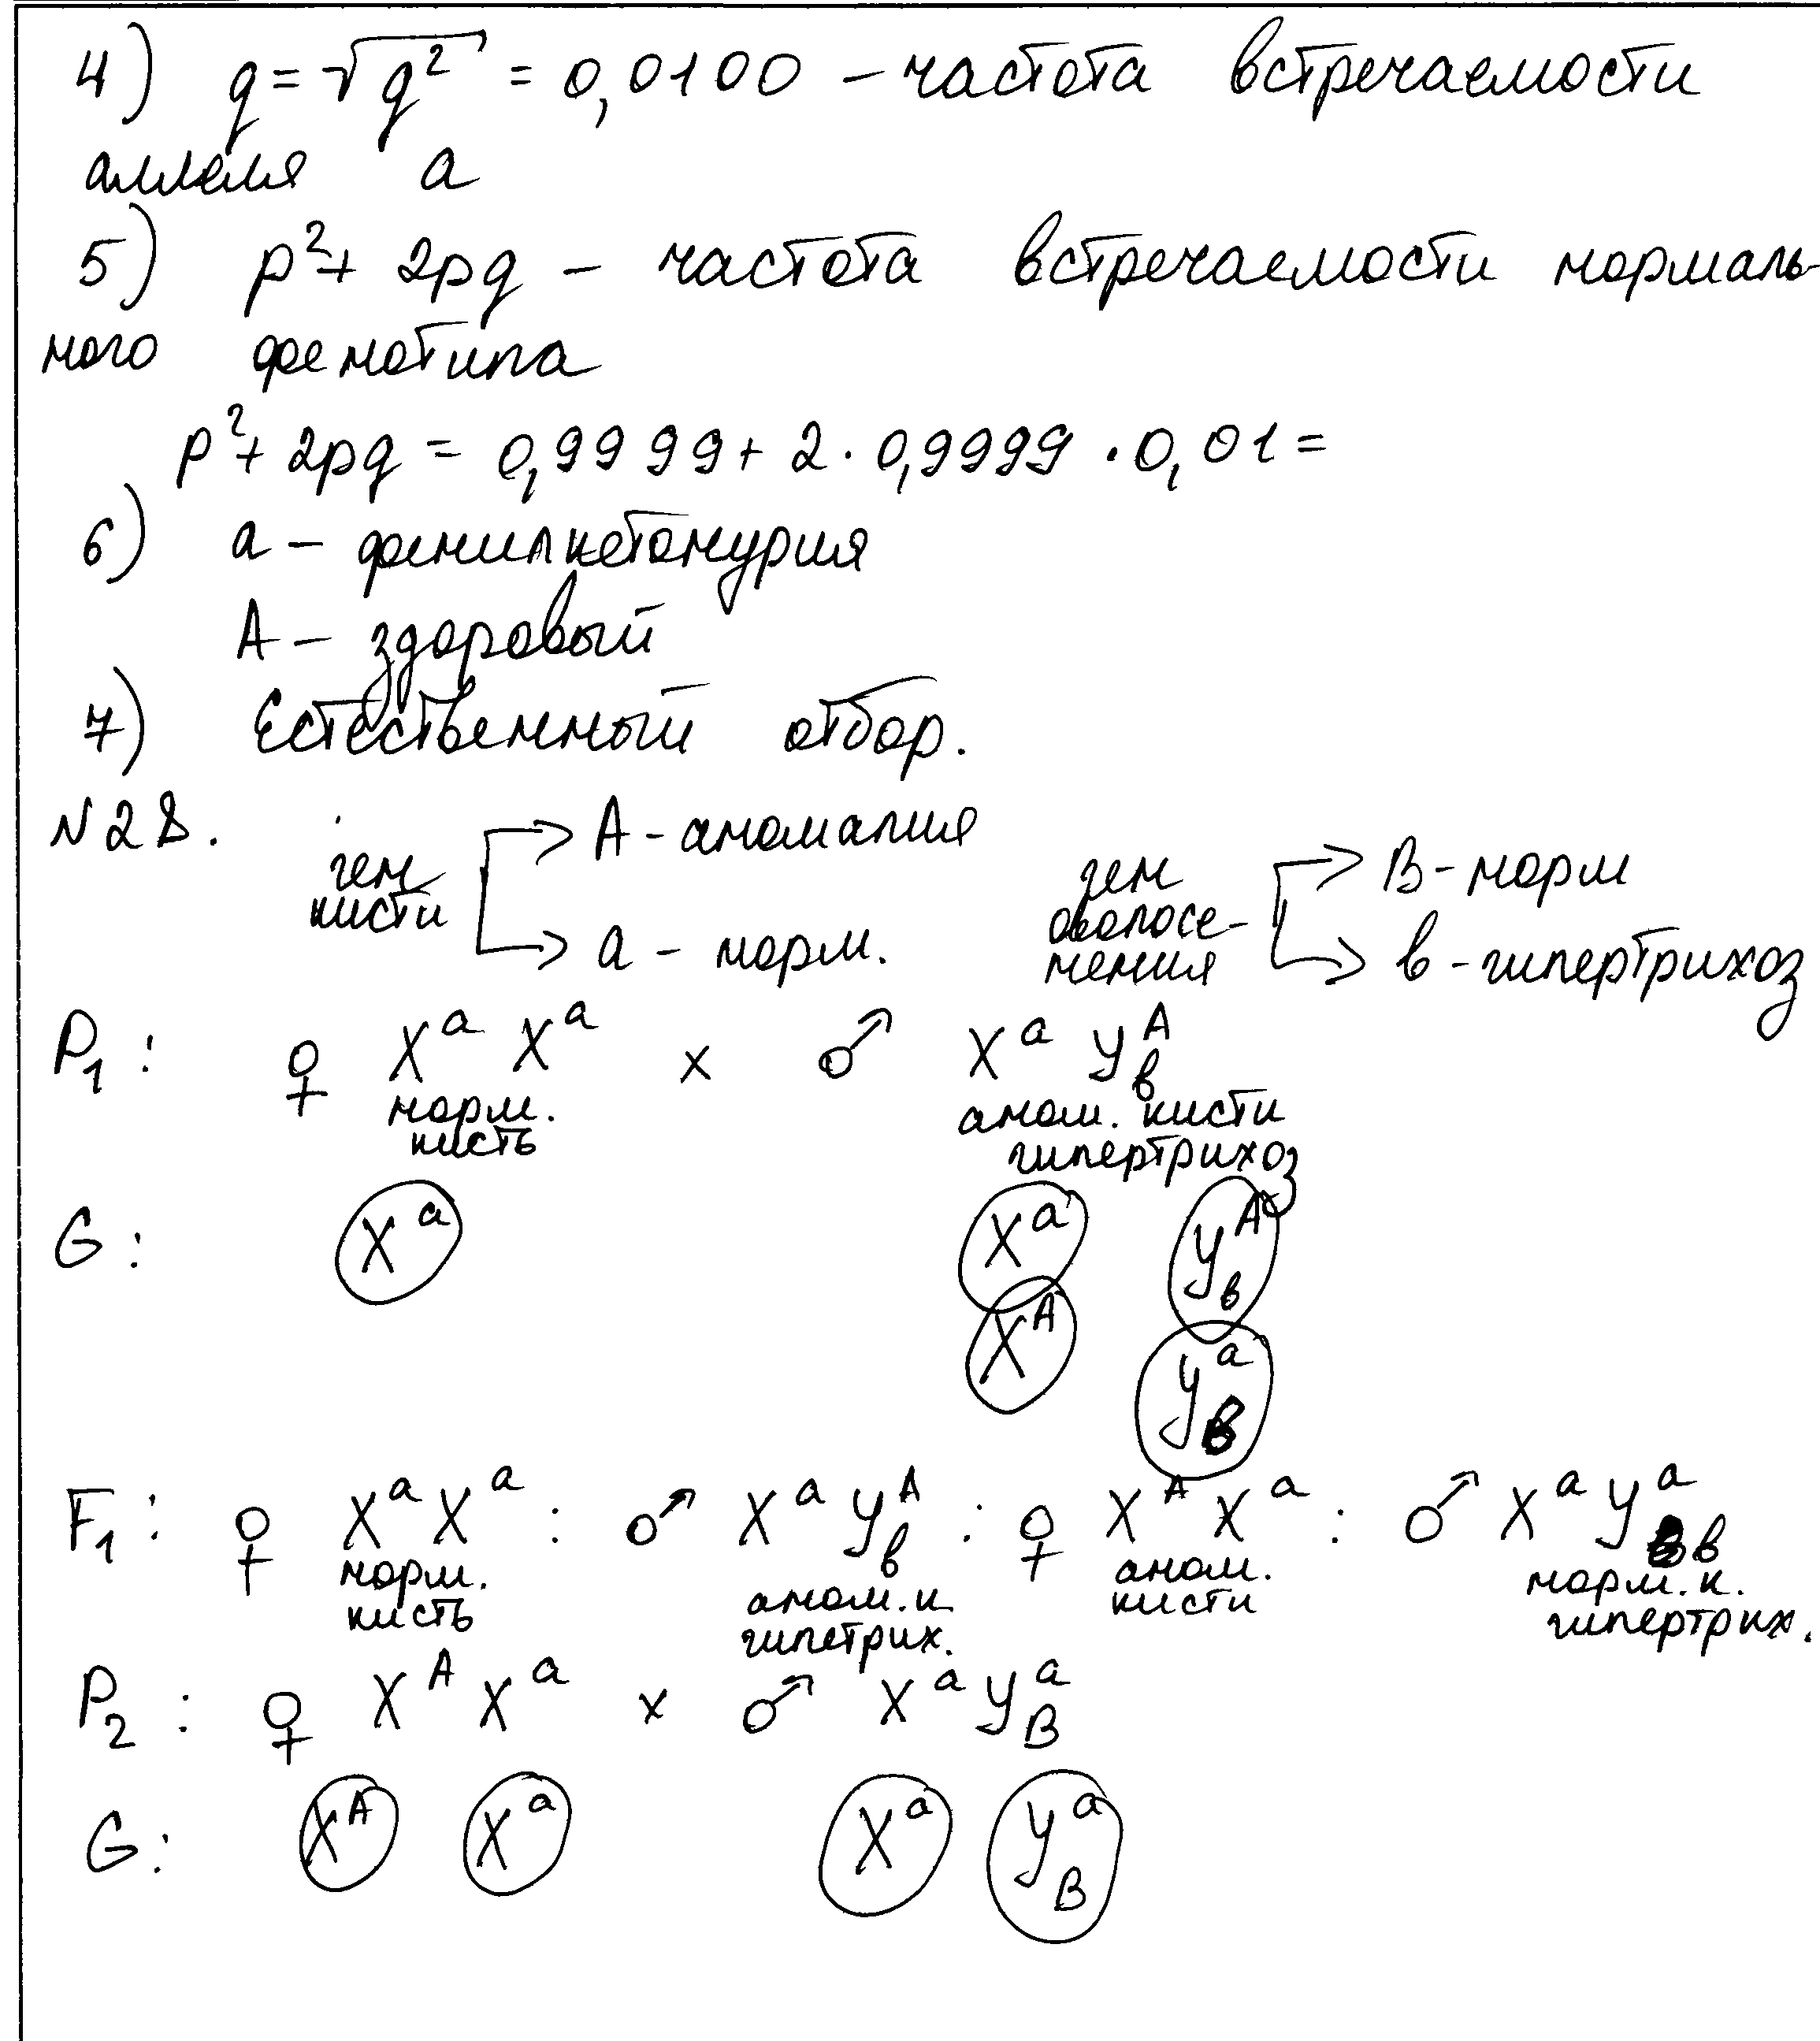 4) q = √q² = 0,0100 – частота встречаемости
аллеля a
5) p² + 2pq – частота встречаемости нормаль-
ного фенотипа
p² + 2pq = 0,9999 + 2 · 0,9999 · 0,01 =
6) a – фенилкетонурия
A – здоровый
7) Естественный отбор.
N28.
ген кисти → A - аномалия
→ a - норм.
ген оволосе-
нения → B - норм
→ в - гипертрихоз
P₁: ♀ XᵃXᵃ × ♂ XᵃYᴬв
норм. кисть
аном. кисти гипертрихоз
G: Xᵃ Xᵃ Yᴬв
Xᴬ YᵃB
F₁: ♀ XᵃXᵃ : ♂ XᵃYᴬв : ♀ XᴬXᵃ : ♂ XᵃYᵃв
норм. кисть
аном. к. гипетрих.
аном. кисти
норм. к. гипертрих.
P₂: ♀ XᴬXᵃ × ♂ XᵃYᵃB
G: Xᴬ Xᵃ Xᵃ YᵃB